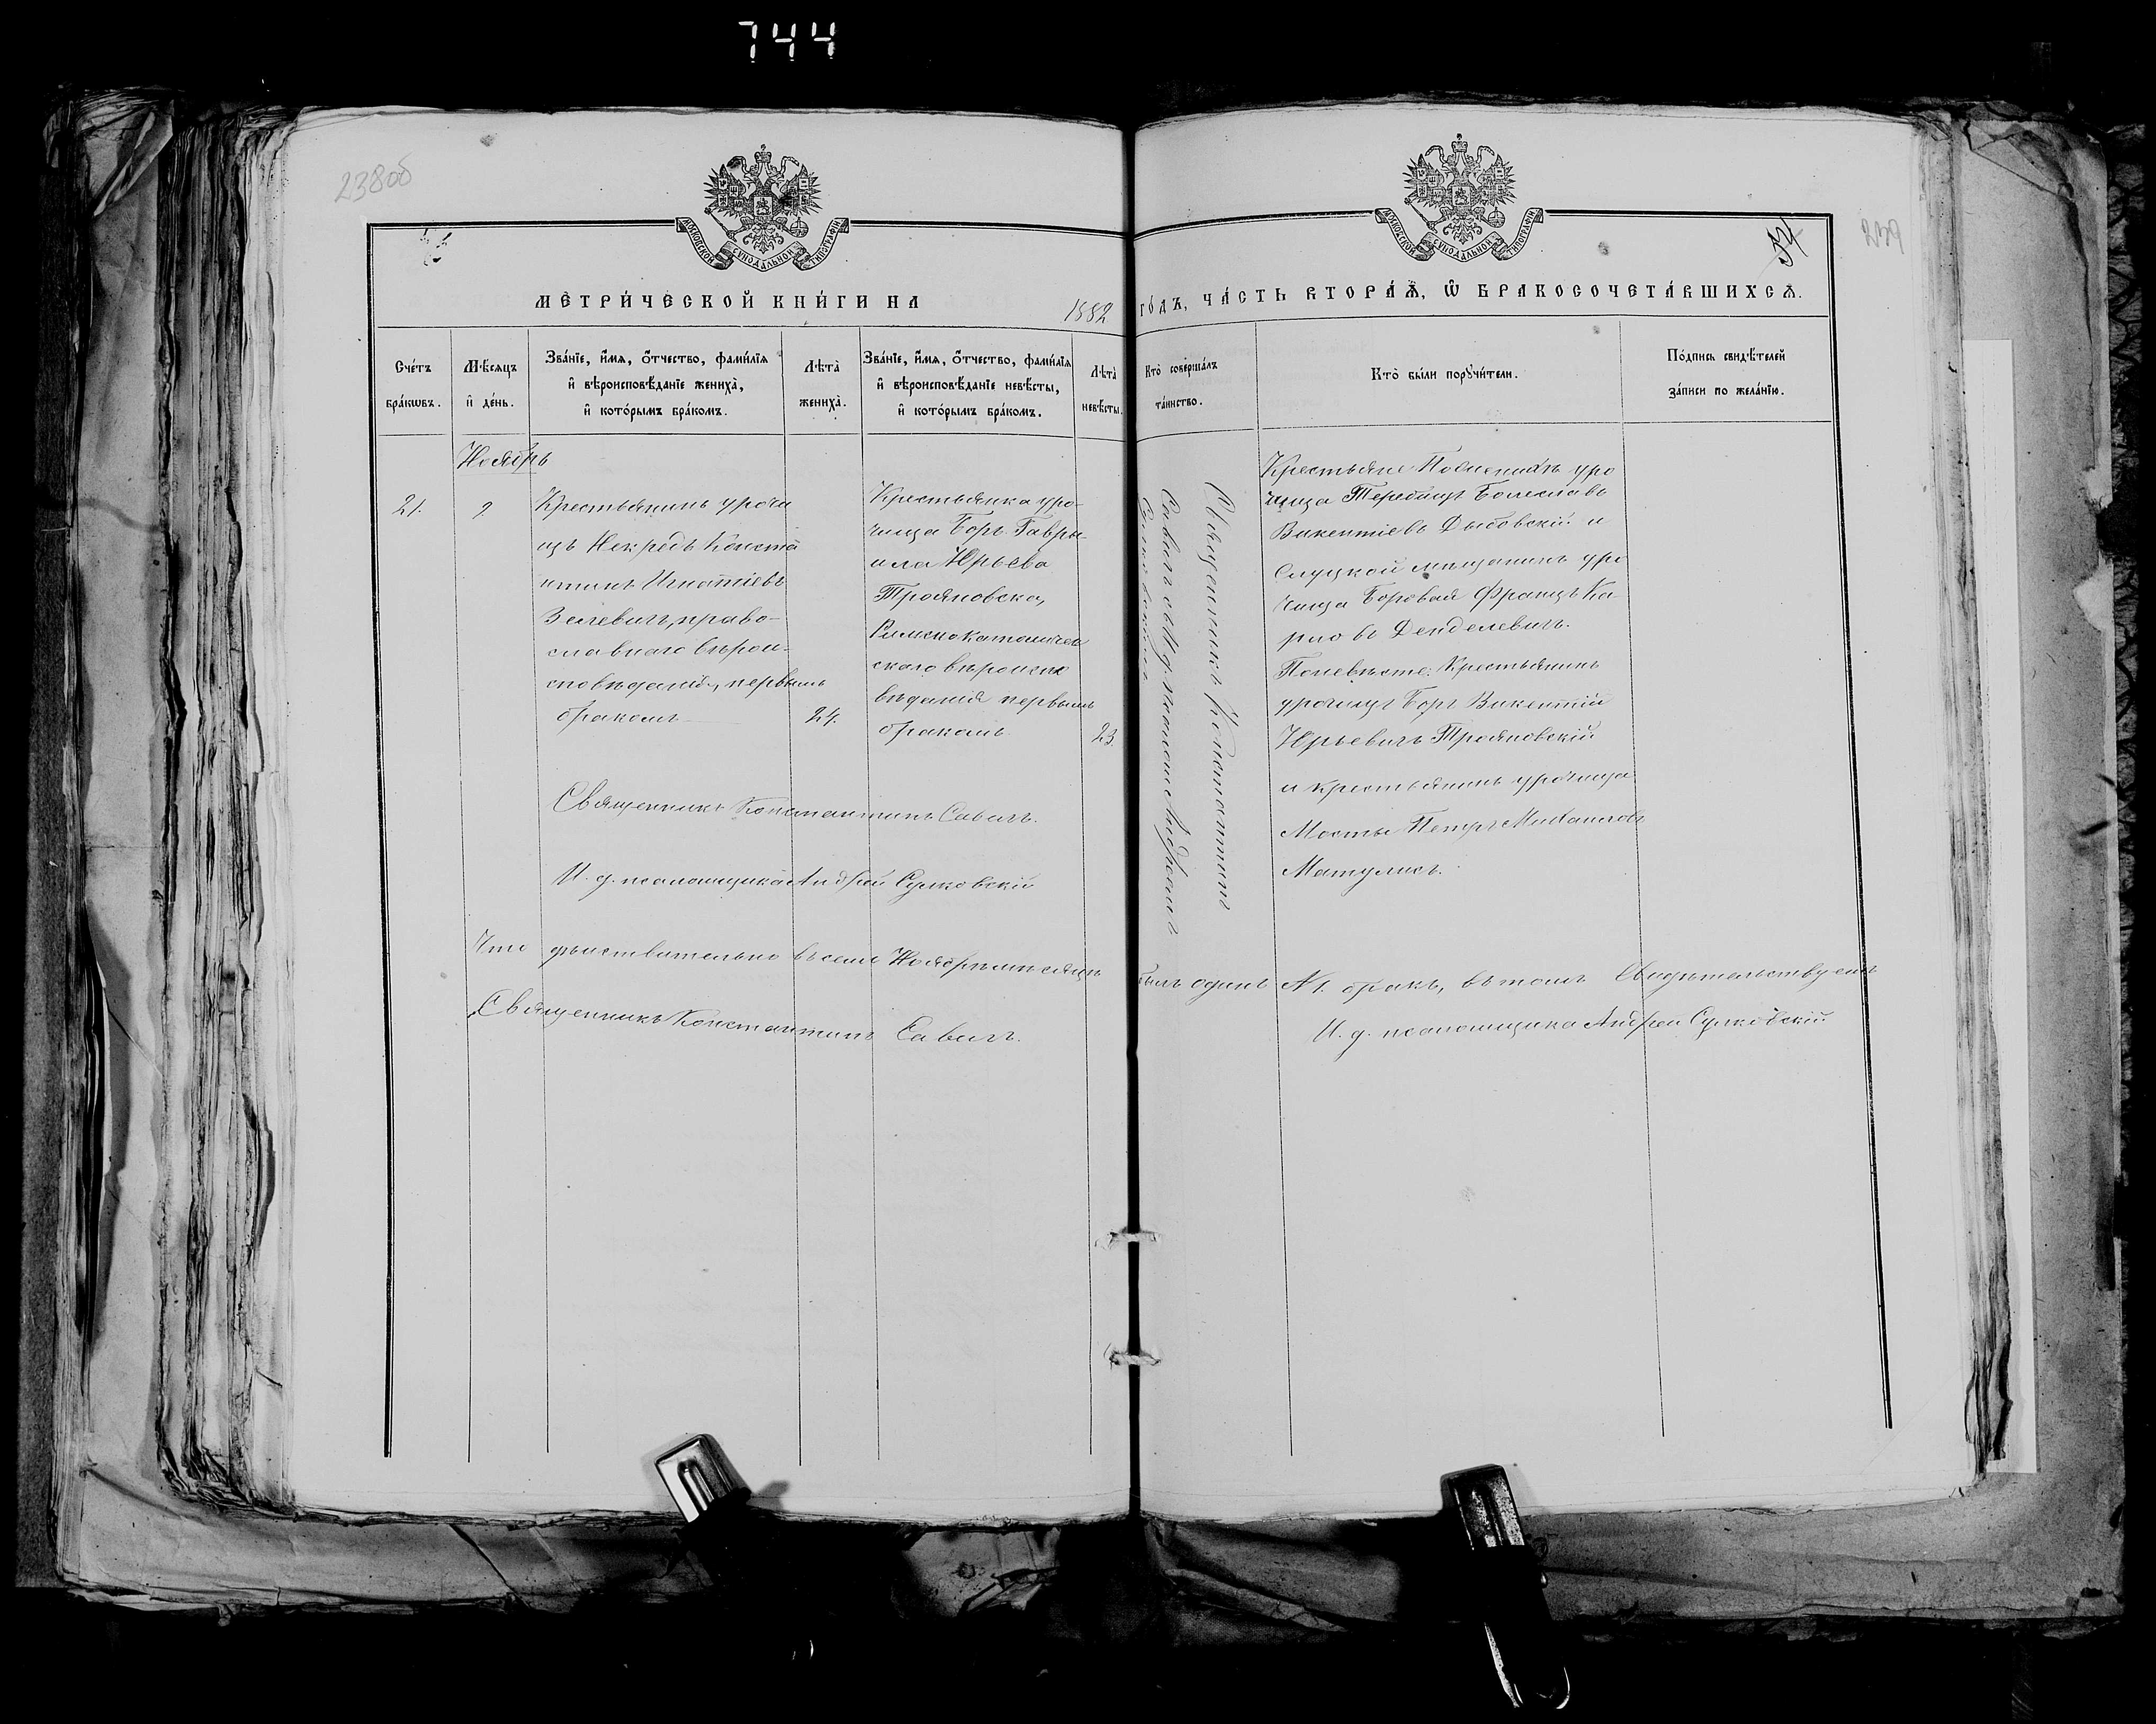 744
238об
239
МОСКОВСКОЙ СѴНОДАЛЬНОЙ ТИПОГРАФІИ
МОСКОВСКОЙ СѴНОДАЛЬНОЙ ТИПОГРАФІИ
МЕТРИ́ЧЕСКОЙ КНИ́ГИ НА 1882 ГО́ДЪ, ЧА́СТЬ ВТОРА́Ѧ, Ѡ БРАКОСОЧЕТА́ВШИХСѦ.
Сче́тъ бра́кѡвъ.
Мѣ́сяцъ и҆ де́нь.
Зва́нїе, и҆́мѧ, ѻ҆́тчество, фами́лїѧ и҆ вѣроисповѣ́данїе жениха̀, и҆ кото́рымъ бра́комъ.
Лѣ́та̀ жениха̀.
Зва́нїе, и҆́мѧ, ѻ҆́тчество, фами́лїѧ и҆ вѣроисповѣ́данїе невѣ́сты, и҆ кото́рымъ бра́комъ.
Лѣ́та̀ невѣ́сты.
Кто̀ соверша́лъ та́инство.
Кто̀ бы́ли порꙋчи́тели.
По́дпись свидѣ́телей за́писи по жела́нїю.
Ноябрь
21.
Крестьянинъ урочи
щъ Некредъ Конста
нтинъ Игнатіевъ
Зелевичъ, право-
славнаго вѣрои-
сповѣданія, первымъ
бракомъ
24.
Крестьянка уро-
чища Боръ Гаври
ила Юрьева
Трояновска,
Римскокатоличес
скаго вѣроиспо
вѣданія первымъ
бракомъ
23.
Священникъ Константинъ
Савичъ съ И. д. псаломщика Андреемъ
Сулковскимъ
Крестьяне уро
чища Теребищъ Болеславъ
Викентіевъ Дыбовскій и
Слуцкой мѣщанинъ уро
чища Боровая Францъ Ка
рловъ Денделевичъ.
По невѣсте: Крестьянинъ
урочищъ Боръ Викентій
Юрьевичъ Трояновскій
и крестьянинъ урочища
Мосты Петръ Михаиловъ
Матулисъ.
Священникъ Константинъ Савичъ.
И. д. псаломщика Андрей Сулковскій
Что дѣйствительно въ семъ Ноябрѣ мѣсяцѣ былъ одинъ №1. бракъ, въ томъ Свидѣтельствуемъ
Священникъ Константинъ Савичъ.
И. д. псаломщика Андрей Сулковскій.